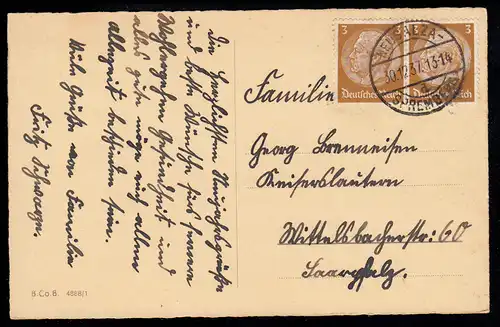 Die herzlichsten Neujahrsgrüße
und beste Wünsche fürs fernere
Wohlergehen Gesundheit und
alles gute möge euch allen
allezeit beschieden sein.
Viele Grüße von Familie
Fritz Schwarz.
B.Co.B. 4888/1
3
3
Deutsches Reich
Deutsches Reich
10.12.37.13-14
SPREMBERG
Familie
Georg Brenneisen
Keiserslautern
Wittelsbacherstr: 60
Saarpfalz.